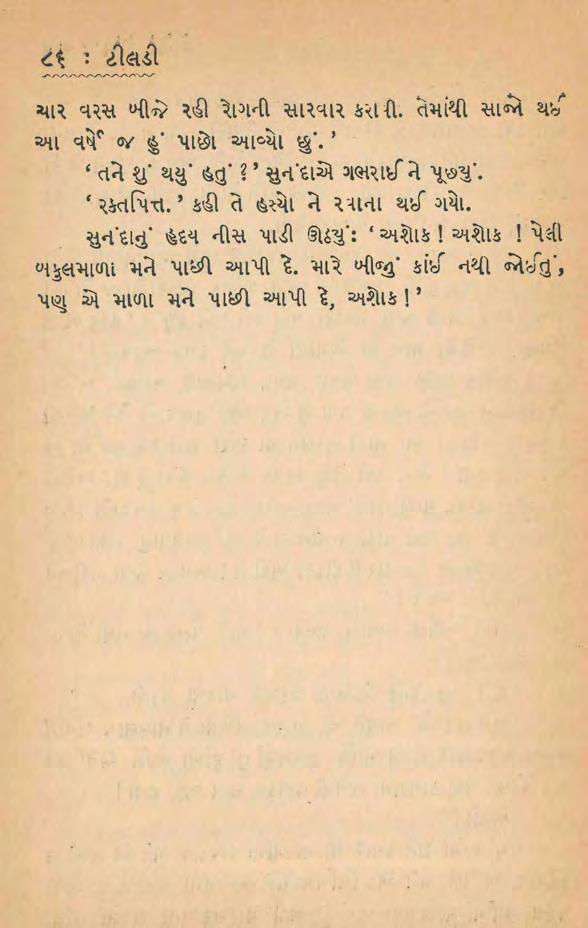 ૮૬ : ટીલડી
ચાર વરસ બીજે રહી રોગની સારવાર કરાવી. તેમાંથી સાજો થઈ
આ વર્ષે જ હું પાછો આવ્યો છું.’
‘તને શું થયું હતું ?’ સુનંદાએ ગભરાઈ ને પૂછ્યું.
‘રક્તપિત્ત.’ કહી તે હસ્યો ને રવાના થઈ ગયો.
સુનંદાનું હૃદય ચીસ પાડી ઊઠ્યું: ‘અશોક ! અશોક ! પેલી
બકુલમાળા મને પાછી આપી દે. મારે બીજું કાંઈ નથી જોઈતું,
પણ એ માળા મને પાછી આપી દે, અશોક !’